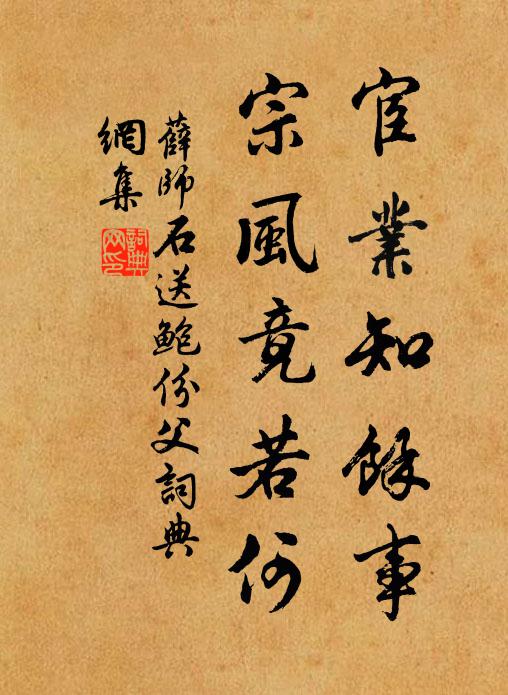 宦業知餘事
宗風竟若何
薛師石送鮑份父詞典
網集
詞典網印